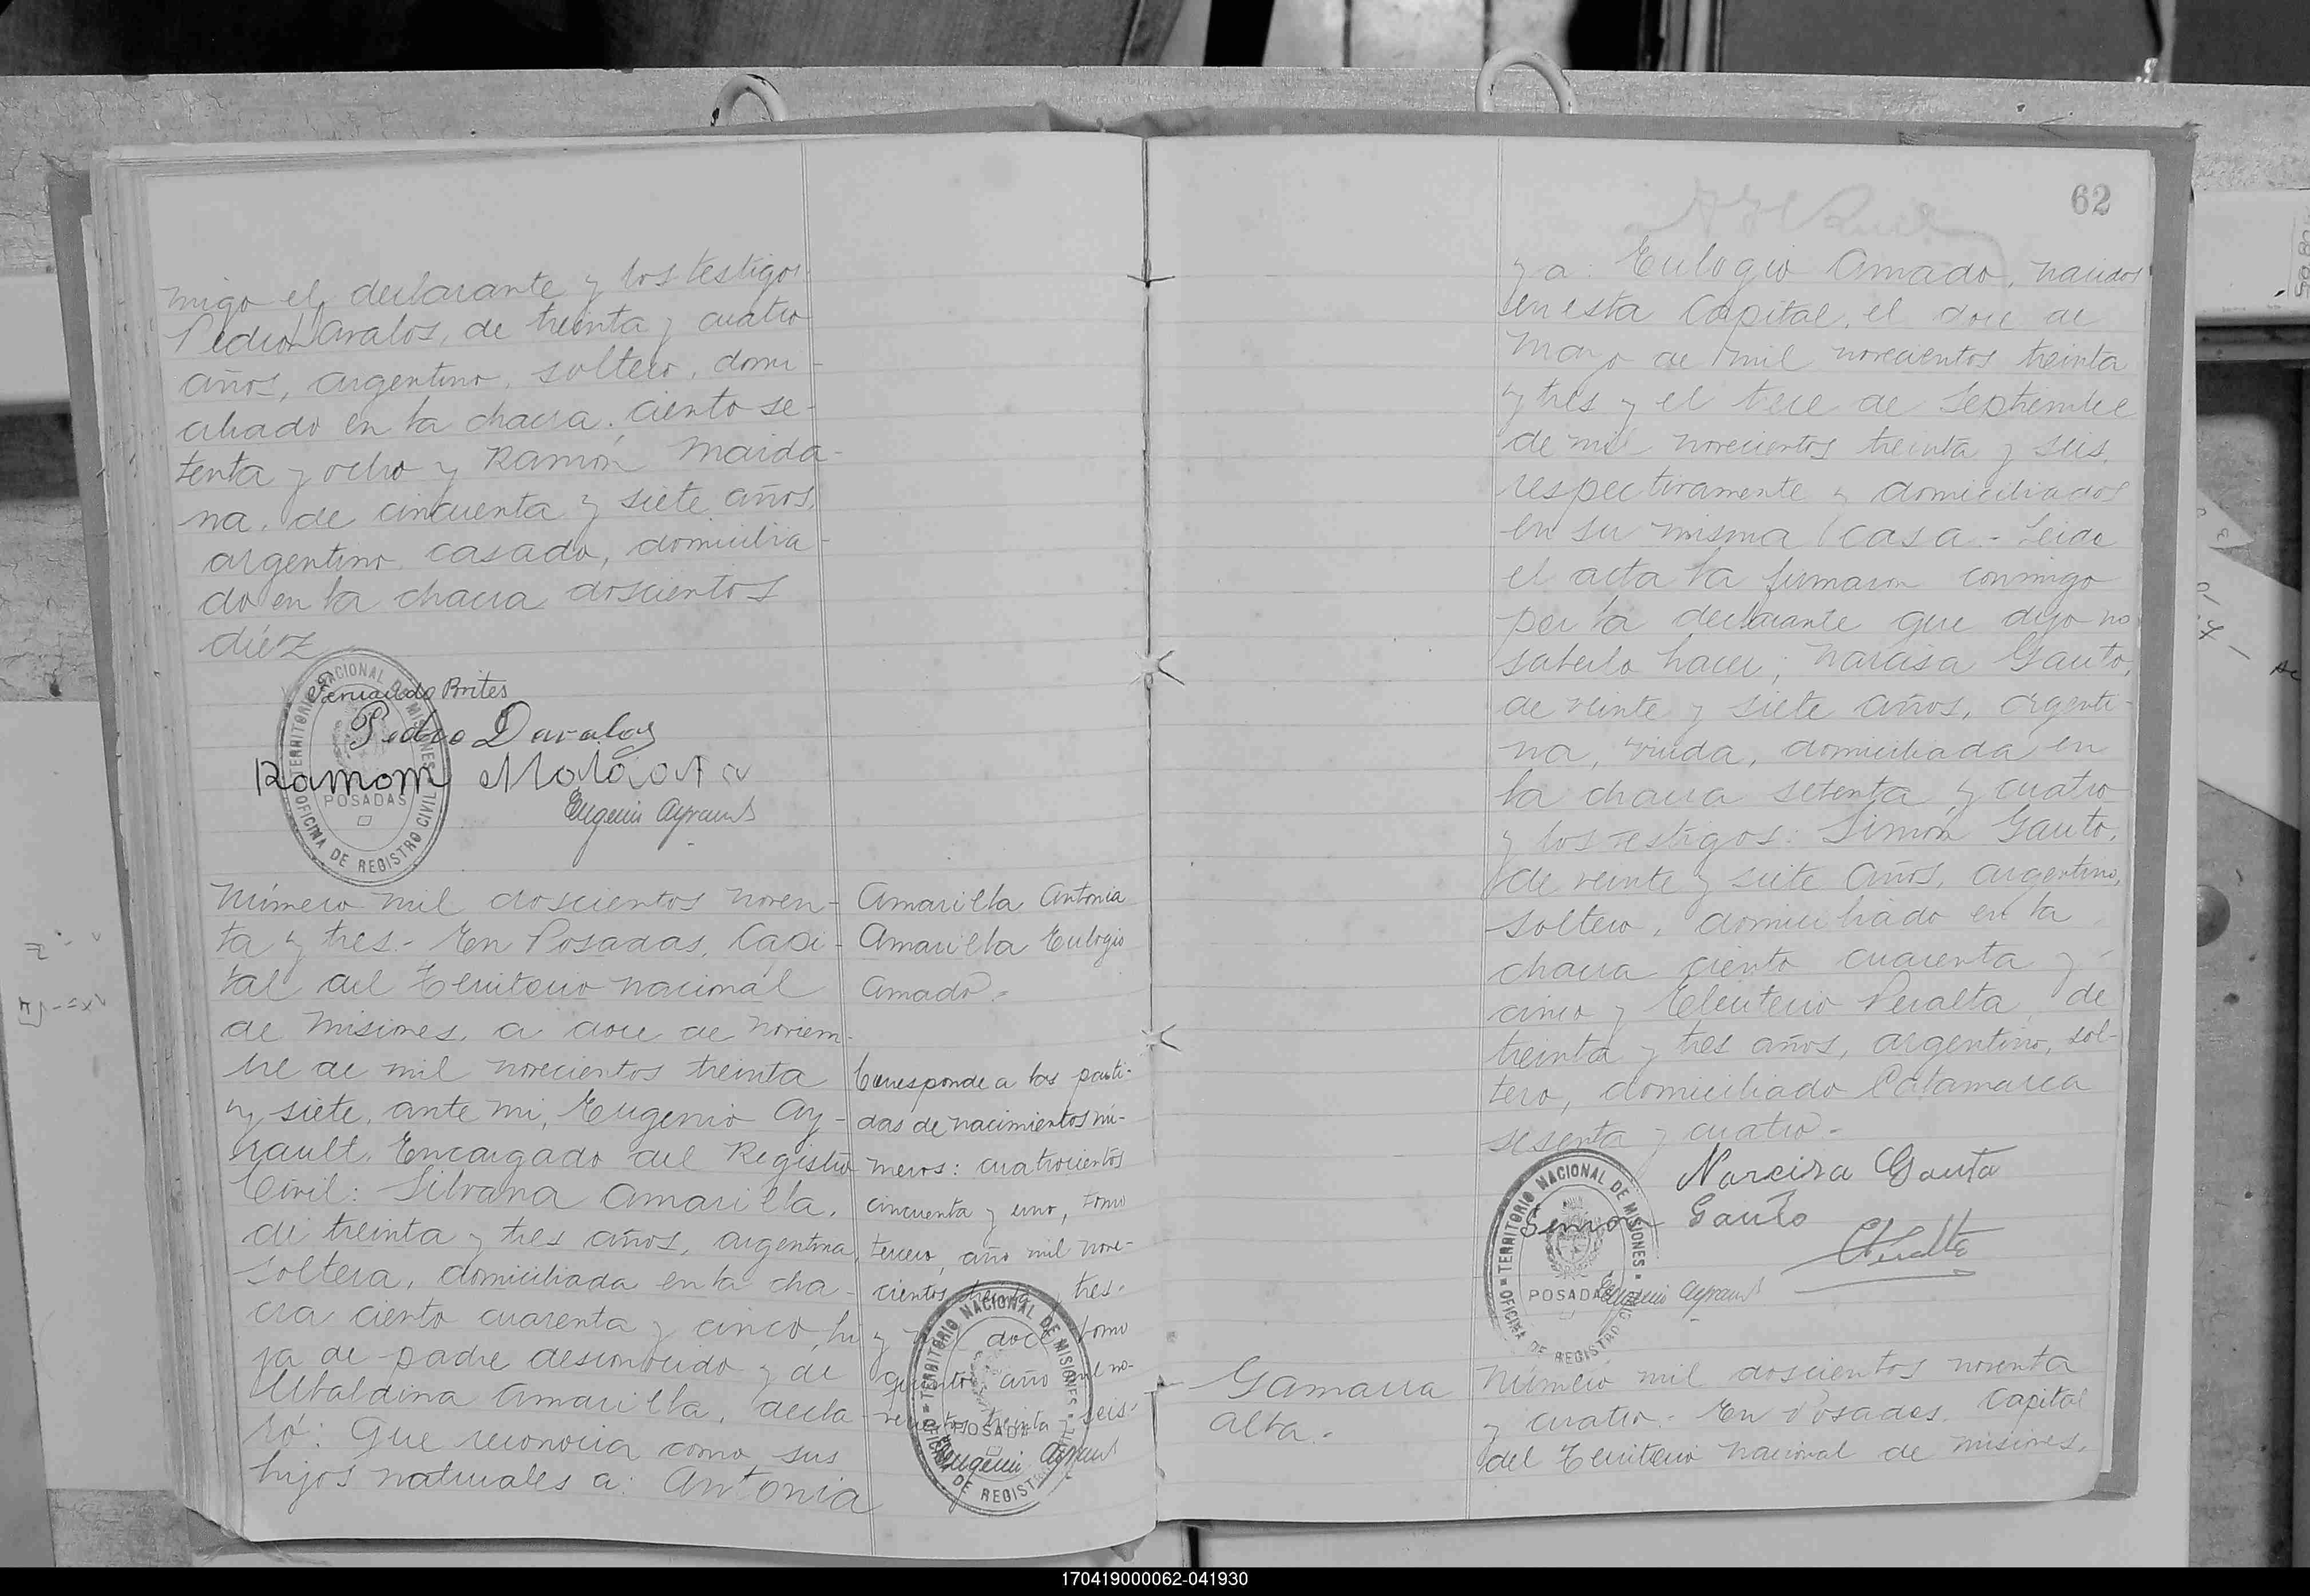 migo el declarante y los testigos
Pedro Davalos, de treinta y cuatro
años, argentino, soltero, domi-
ciliado en la chacra ciento se-
tenta y ocho y Ramón Maida-
na, de cincuenta y siete años,
argentino casado, domicilia-
do en la chacra doscientos
diéz
TERRITORIO NACIONAL DE MISIONES
POSADAS
OFICINA DE REGISTRO CIVIL
Fernando Brites
Pedro Davalos
Ramom
Eugenio Ayrault
Número mil doscientos noven-
ta y tres.- En Posadas, Capi-
tal del Territorio nacional
de Misiones, a doce de noviem-
bre de mil novecientos treinta
y siete, ante mi, Eugenio Ay-
rault, Encargado del Registro
Civil: Silvana Amarilla,
de treinta y tres años, argentina,
soltera, domiciliada en la cha-
cra ciento cuarenta y cinco, hi
ja de padre desconocido y de
Ubaldina Amarilla, decla-
ró: Que reconocia como sus
hijos naturales a: Antonia
Amarilla Antonia
Amarilla Eulogio
Amado.-
Corresponde a las parti-
das de nacimientos nú-
meros: cuatrocientos
cincuenta y uno, tomo
tercero, año mil nove-
cientos treinta y tres.
y doce tomo
quinto año mil no-
vecientos treinta y seis.
TERRITORIO NACIONAL DE MISIONES
POSADAS
OFICINA DE REGISTRO CIVIL
Eugenio Ayrault
62
y a: Eulogio Amado, nacidos
en esta Capital, el doce de
Mayo de mil novecientos treinta
y tres y el trece de Septiembre
de mil novecientos treinta y seis,
respectivamente y domiciliados
en su misma casa.- Leida
el acta la firmaron conmigo
por la declarante que dijo no
saberlo hacer, Narcisa Gauto,
de veinte y siete años, argenti-
na, viuda, domiciliada en
la chacra setenta y cuatro
y los testigos: Simón Gauto,
de veinte y siete años, argentino,
soltero, domiciliado en la
chacra ciento cuarenta y
cinco y Eleuterio Peralta, de
treinta y tres años, argentino, sol-
tero, domiciliado Catamarca
sesenta y cuatro.-
Narcisa Gauta
Simon Gauto
Peralta
Eugenio Ayrault
TERRITORIO NACIONAL DE MISIONES
POSADAS
OFICINA DE REGISTRO CIVIL
Gamarra
Alta.-
Número mil doscientos noventa
y cuatro.- En Posadas, Capital
del Territorio Nacional de Misiones,
170419000062-041930